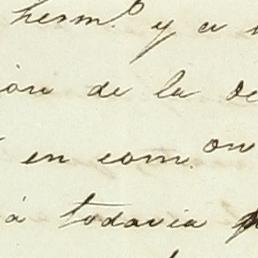 herm.o y a
ión de la de
en com.on
á todavia